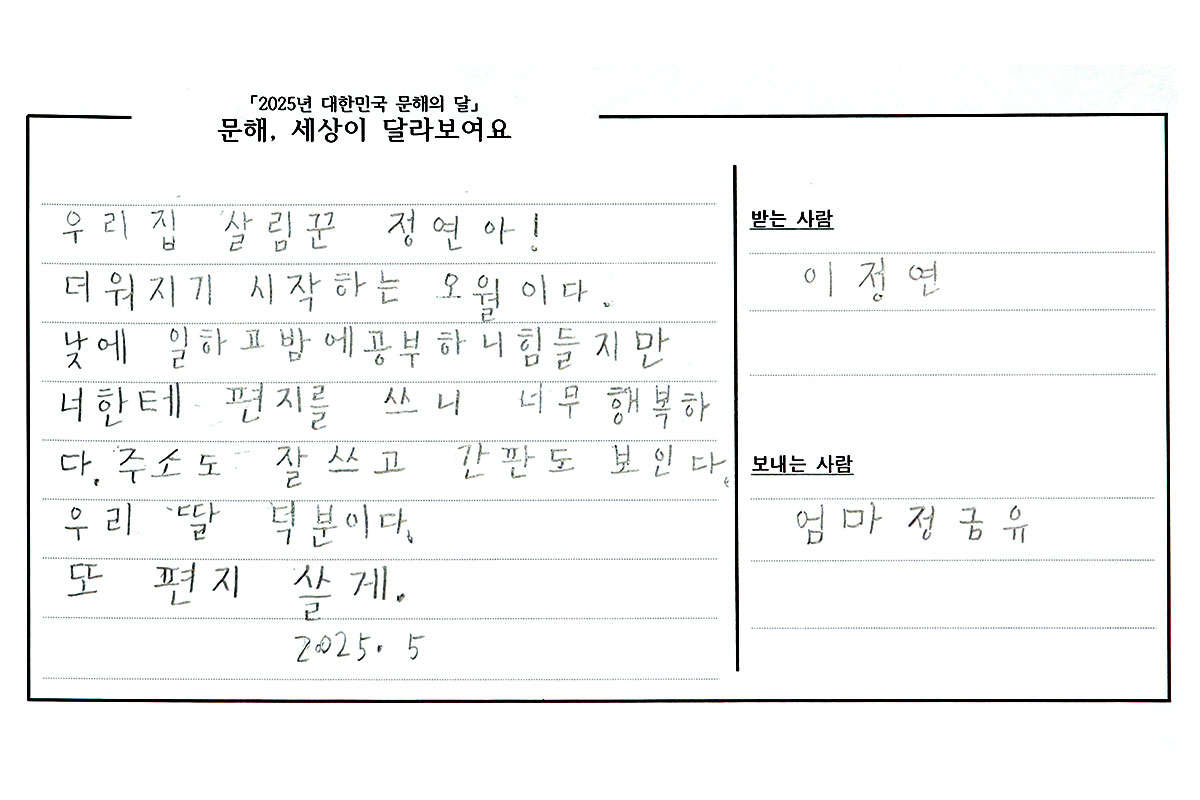 「2025년 대한민국 문해의 달」
문해, 세상이 달라보여요
우리집 살림꾼 정연아!
더워지기 시작하는 오월이다.
낮에 일하고밤에공부하니힘들지만
너한테 편지를 쓰니 너무 행복하
다. 주소도 잘쓰고 간판도 보인다.
우리 딸 덕분이다.
또 편지 쓸게.
2025. 5
받는 사람
이정연
보내는 사람
엄마 정금유